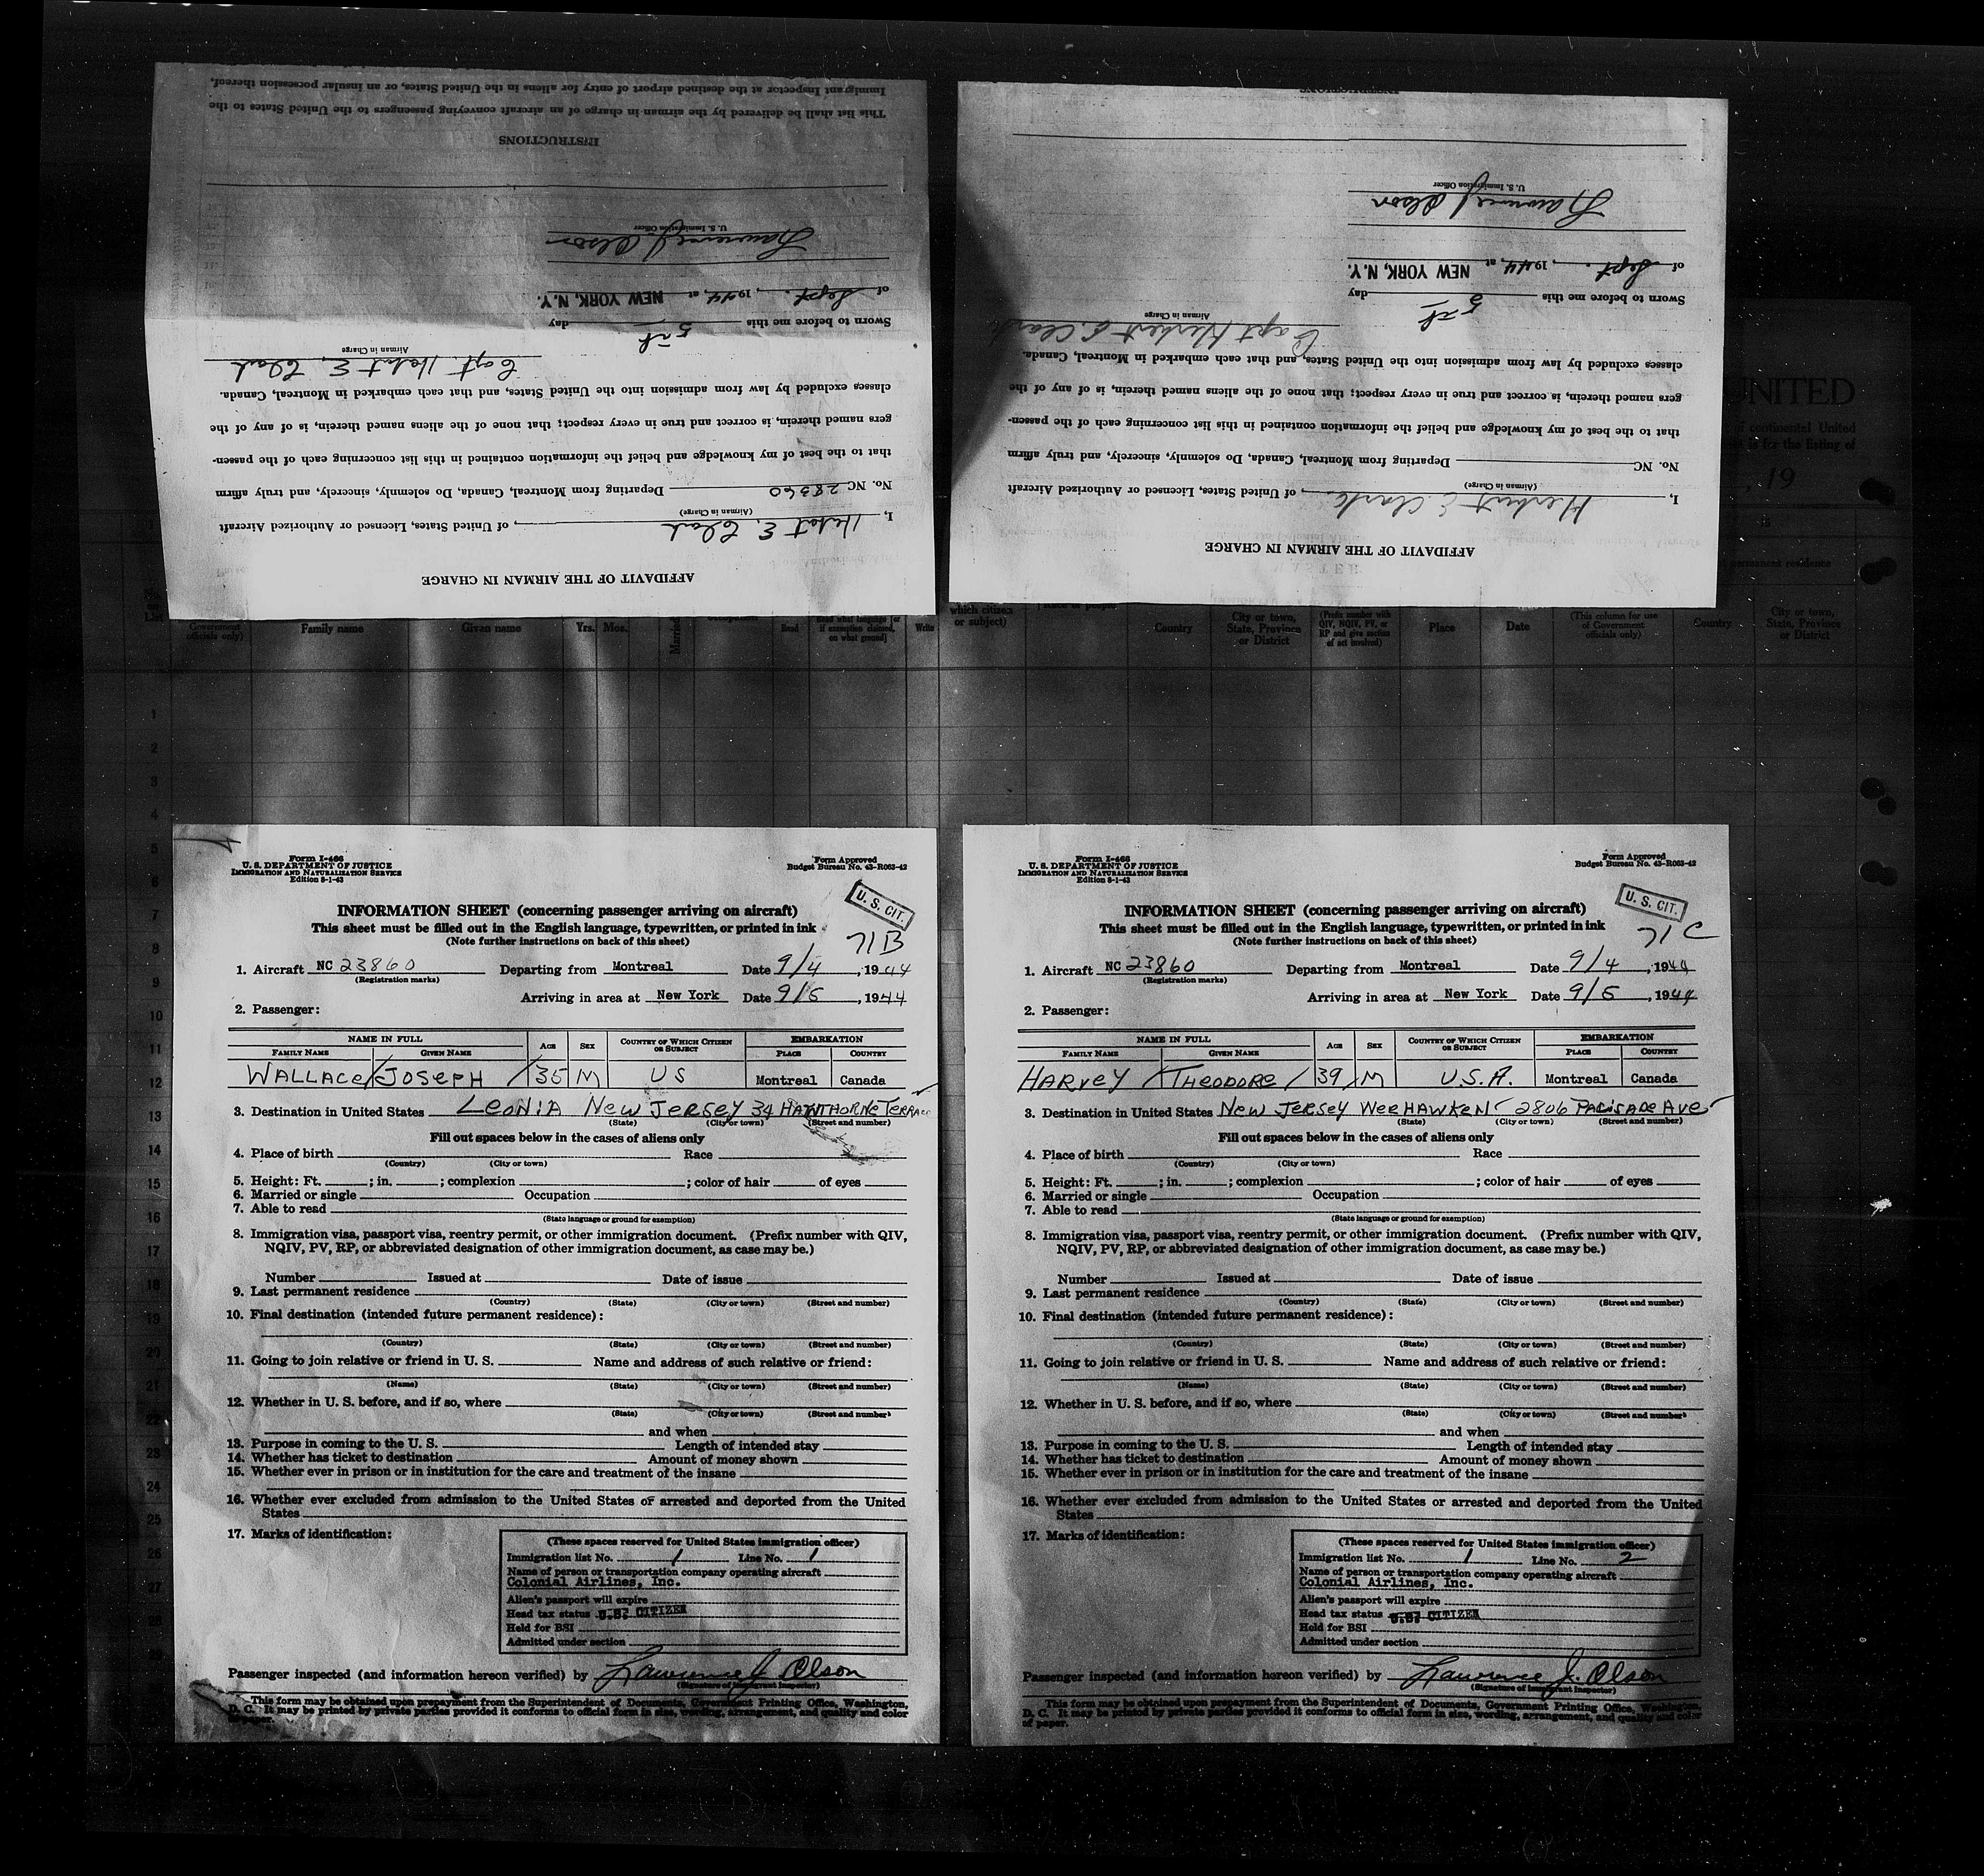 AFFIDAVIT OF THE AIRMAN IN CHARGE
I, Herbert E. Clark, of United States, Licensed or Authorized Aircraft
(Airman in Charge)
No. NC 28360 Departing from Montreal, Canada, Do solemnly, sincerely, and truly affirm
that to the best of my knowledge and belief the information contained in this list concerning each of the passen-
gers named therein, is correct and true in every respect; that none of the aliens named therein, is of any of the
classes excluded by law from admission into the United States, and that each embarked in Montreal, Canada.
Capt. Herbert E. Clark
Airman in Charge
Sworn to before me this 5th day
of Sept., 1944, at NEW YORK, N.Y.
Lawrence J. Olson
U. S. Immigration Officer
INSTRUCTIONS
This list shall be delivered by the airman in charge of an aircraft conveying passengers to the United States to the
Immigrant Inspector at the destined airport of entry for aliens in the United States, or an insular possession thereof.
AFFIDAVIT OF THE AIRMAN IN CHARGE
I, Herbert E. Clark, of United States, Licensed or Authorized Aircraft
(Airman in Charge)
No. NC Departing from Montreal, Canada, Do solemnly, sincerely, and truly affirm
that to the best of my knowledge and belief the information contained in this list concerning each of the passen-
gers named therein, is correct and true in every respect; that none of the aliens named therein, is of any of the
classes excluded by law from admission into the United States, and that each embarked in Montreal, Canada.
Capt Herbert E. Clark
Airman in Charge
Sworn to before me this 5th day
of Sept., 1944, at NEW YORK, N.Y.
Lawrence J Olson
U. S. Immigration Officer
INSTRUCTIONS
UNITED
continental United
is for the listing of
19
permanent residence
List
Government
officials only)
Family name
Given name
Yrs. Mos.
Married
Read
Read what language [or
if exemption claimed,
on what ground]
Write
which citizen
or subject)
Country
City or town,
State, Province
or District
(Prefix number with
QIV, NQIV, PV, or
RP and give section
of act involved)
Place
Date
(This column for use
of Government
officials only)
Country
City or town,
State, Province
or District
1
2
3
4
5
6
7
8
9
10
11
12
13
14
15
16
17
18
19
20
21
22
23
24
25
26
27
28
Form I-466
U. S. DEPARTMENT OF JUSTICE
IMMIGRATION AND NATURALIZATION SERVICE
Edition 8-1-43
Form Approved
Budget Bureau No. 43-R063-42
U. S. CIT.
INFORMATION SHEET (concerning passenger arriving on aircraft)
This sheet must be filled out in the English language, typewritten, or printed in ink
(Note further instructions on back of this sheet)
71B
1. Aircraft NC 23860 Departing from Montreal Date 9/4, 1944
(Registration marks)
Arriving in area at New York Date 9/5, 1944
2. Passenger:
NAME IN FULL AGE SEX COUNTRY OF WHICH CITIZEN OR SUBJECT EMBARKATION
FAMILY NAME GIVEN NAME PLACE COUNTRY
WALLACE / JOSEPH / 35 M US Montreal Canada
3. Destination in United States LEONIA NEW JERSEY 34 HAWTHORNE TERRACE
(State) (City or town) (Street and number)
Fill out spaces below in the cases of aliens only
4. Place of birth Race
(Country) (City or town)
5. Height: Ft. ; in. ; complexion ; color of hair of eyes
6. Married or single Occupation
7. Able to read
(State language or ground for exemption)
8. Immigration visa, passport visa, reentry permit, or other immigration document. (Prefix number with QIV,
NQIV, PV, RP, or abbreviated designation of other immigration document, as case may be.)
Number Issued at Date of issue
9. Last permanent residence
(Country) (State) (City or town) (Street and number)
10. Final destination (intended future permanent residence):
(Country) (State) (City or town) (Street and number)
11. Going to join relative or friend in U. S. Name and address of such relative or friend:
(Name) (State) (City or town) (Street and number)
12. Whether in U. S. before, and if so, where
(State) (City or town) (Street and number)
and when
13. Purpose in coming to the U. S. Length of intended stay
14. Whether has ticket to destination Amount of money shown
15. Whether ever in prison or in institution for the care and treatment of the insane
16. Whether ever excluded from admission to the United States or arrested and deported from the United
States
17. Marks of identification:
(These spaces reserved for United States immigration officer)
Immigration list No. 1 Line No. 1
Name of person or transportation company operating aircraft
Colonial Airlines, Inc.
Alien's passport will expire
Head tax status U.S. CITIZEN
Held for BSI
Admitted under section
Passenger inspected (and information hereon verified) by Lawrence J. Olson
(Signature of Immigrant Inspector)
This form may be obtained upon prepayment from the Superintendent of Documents, Government Printing Office, Washington,
D. C. It may be printed by private parties provided it conforms to official form in size, wording, arrangement, and quality and color
of paper.
Form I-466
U. S. DEPARTMENT OF JUSTICE
IMMIGRATION AND NATURALIZATION SERVICE
Edition 8-1-43
Form Approved
Budget Bureau No. 43-R063-42
U. S. CIT.
INFORMATION SHEET (concerning passenger arriving on aircraft)
This sheet must be filled out in the English language, typewritten, or printed in ink
(Note further instructions on back of this sheet)
71C
1. Aircraft NC 23860 Departing from Montreal Date 9/4, 1944
(Registration marks)
Arriving in area at New York Date 9/5, 1944
2. Passenger:
NAME IN FULL AGE SEX COUNTRY OF WHICH CITIZEN OR SUBJECT EMBARKATION
FAMILY NAME GIVEN NAME PLACE COUNTRY
HARVEY / THEODORE / 39 / M U.S.A. Montreal Canada
3. Destination in United States NEW JERSEY WEEHAWKEN 2806 PALISADE AVE
(State) (City or town) (Street and number)
Fill out spaces below in the cases of aliens only
4. Place of birth Race
(Country) (City or town)
5. Height: Ft. ; in. ; complexion ; color of hair of eyes
6. Married or single Occupation
7. Able to read
(State language or ground for exemption)
8. Immigration visa, passport visa, reentry permit, or other immigration document. (Prefix number with QIV,
NQIV, PV, RP, or abbreviated designation of other immigration document, as case may be.)
Number Issued at Date of issue
9. Last permanent residence
(Country) (State) (City or town) (Street and number)
10. Final destination (intended future permanent residence):
(Country) (State) (City or town) (Street and number)
11. Going to join relative or friend in U. S. Name and address of such relative or friend:
(Name) (State) (City or town) (Street and number)
12. Whether in U. S. before, and if so, where
(State) (City or town) (Street and number)
and when
13. Purpose in coming to the U. S. Length of intended stay
14. Whether has ticket to destination Amount of money shown
15. Whether ever in prison or in institution for the care and treatment of the insane
16. Whether ever excluded from admission to the United States or arrested and deported from the United
States
17. Marks of identification:
(These spaces reserved for United States immigration officer)
Immigration list No. 1 Line No. 2
Name of person or transportation company operating aircraft
Colonial Airlines, Inc.
Alien's passport will expire
Head tax status U.S. CITIZEN
Held for BSI
Admitted under section
Passenger inspected (and information hereon verified) by Lawrence J. Olson
(Signature of Immigrant Inspector)
This form may be obtained upon prepayment from the Superintendent of Documents, Government Printing Office, Washington,
D. C. It may be printed by private parties provided it conforms to official form in size, wording, arrangement, and quality and color
of paper.